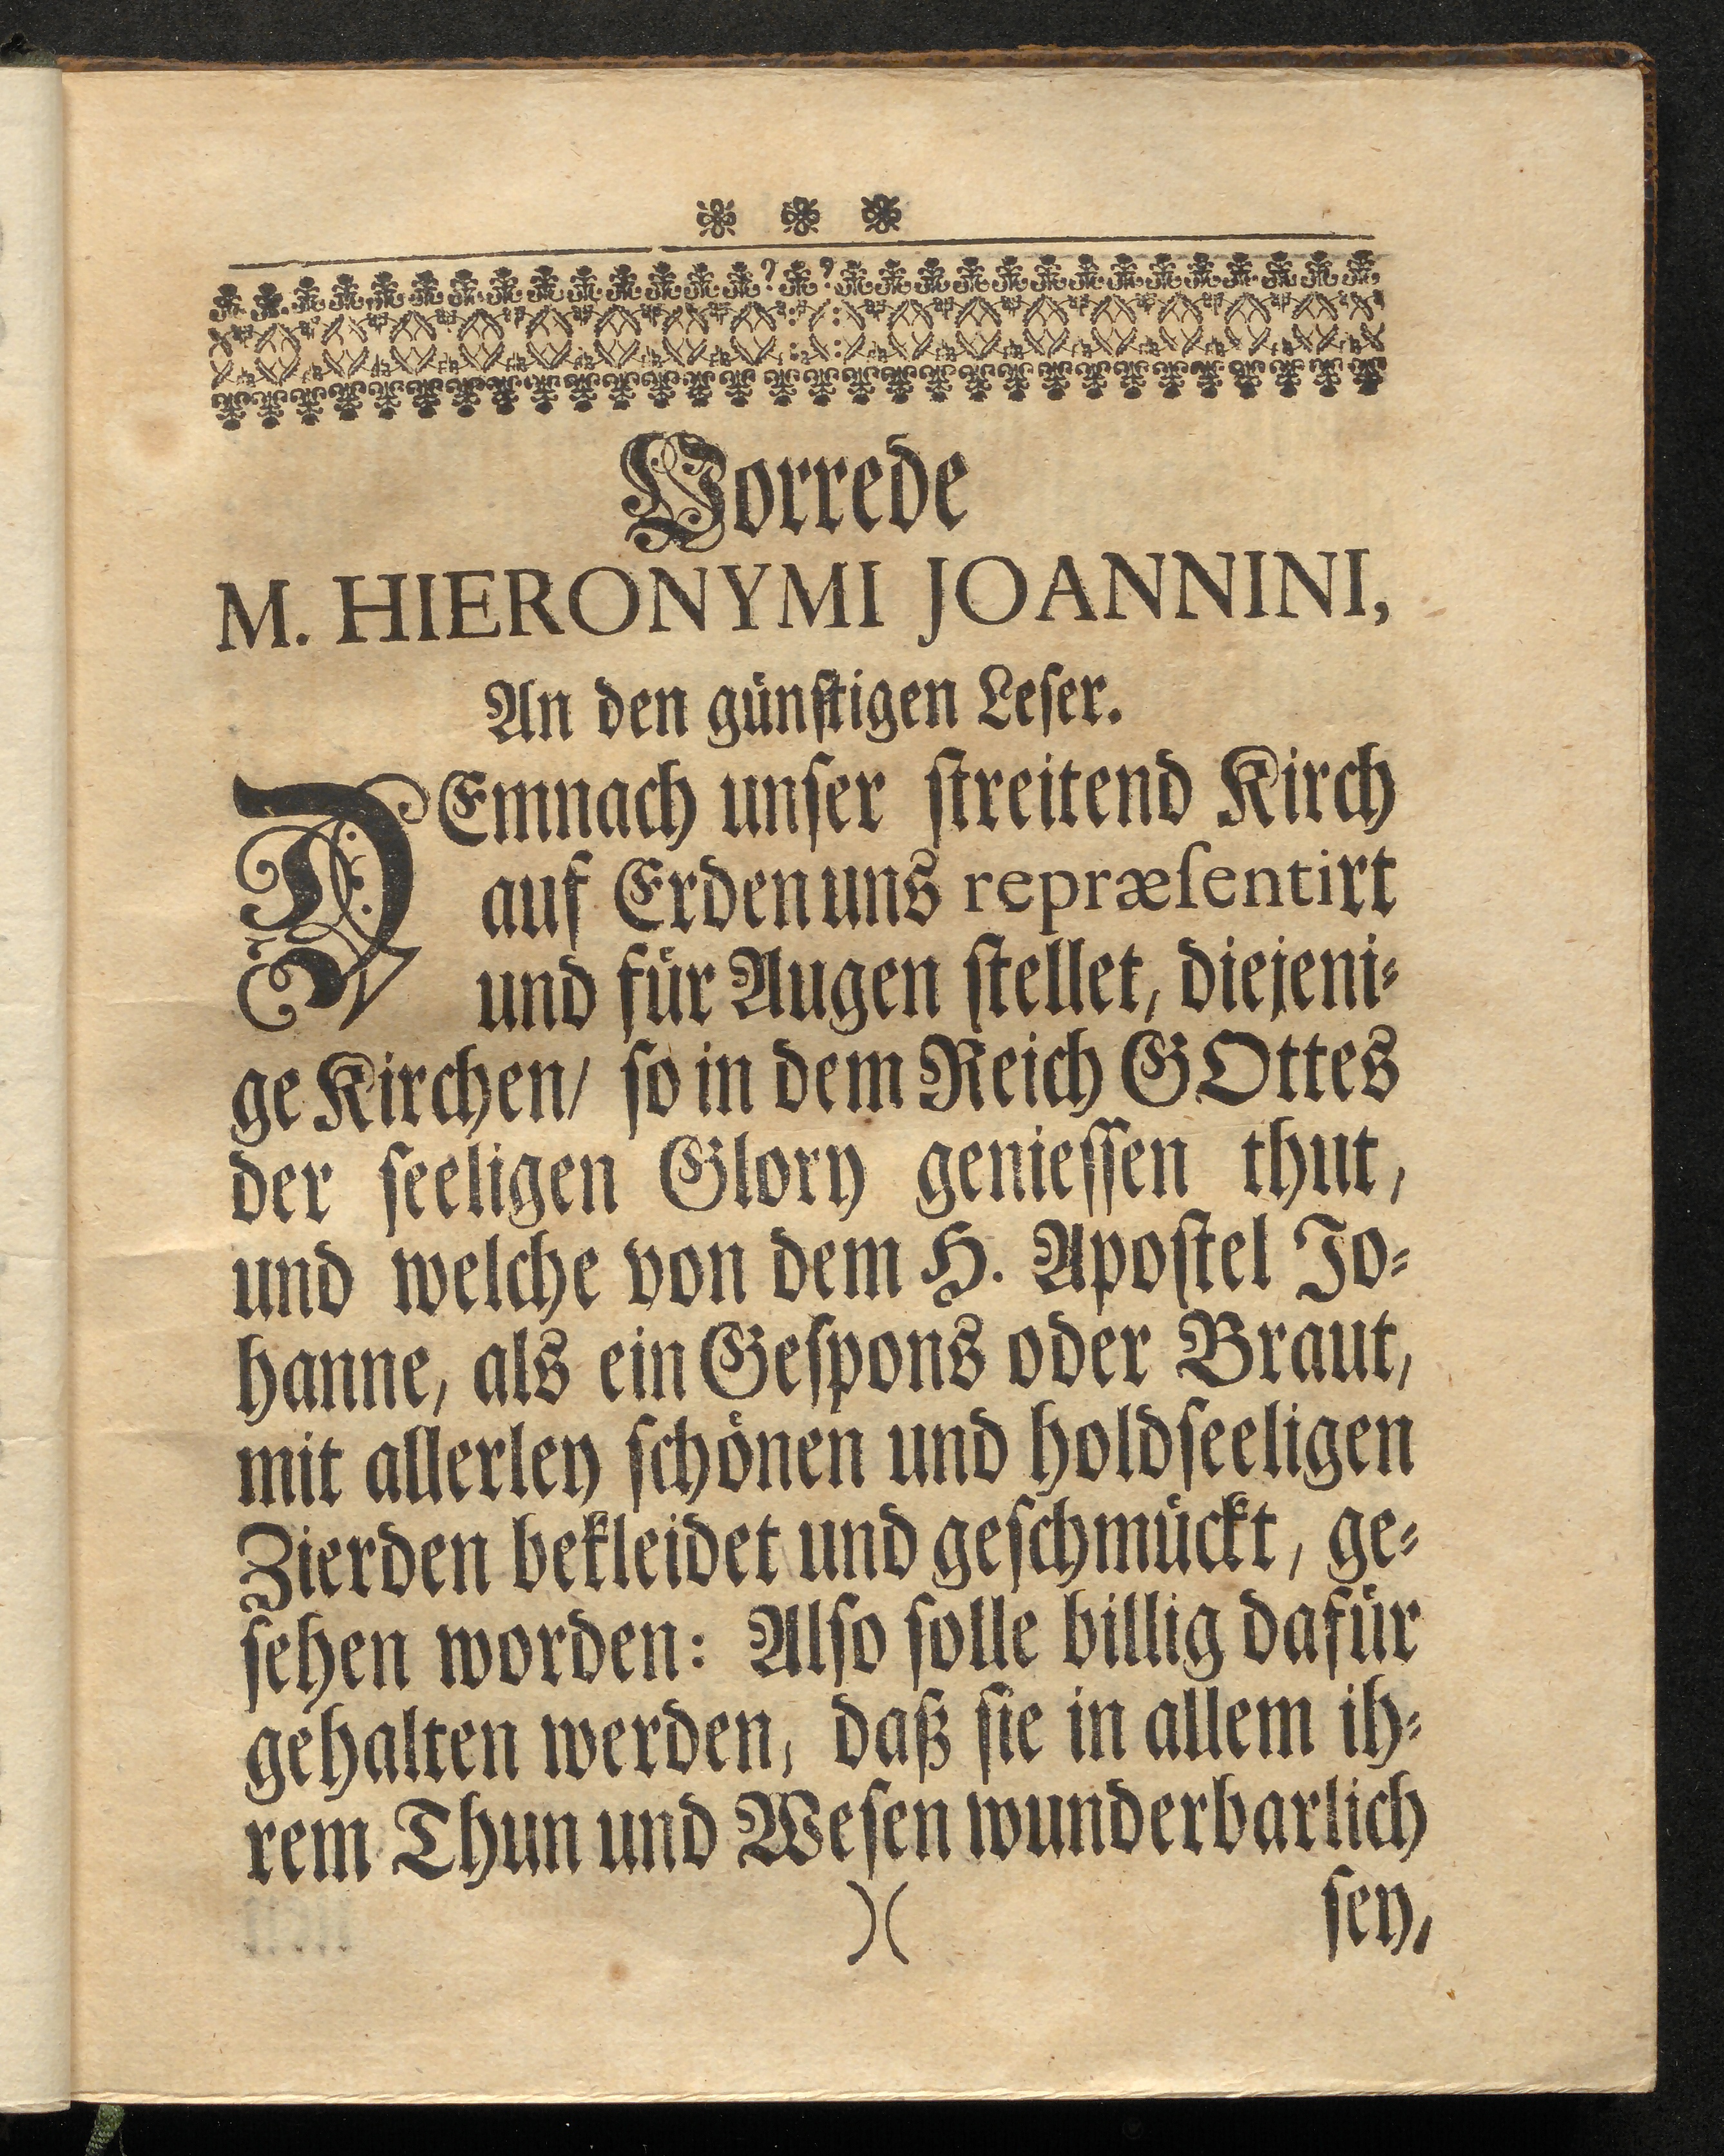 Vorrede
M. HIERONYMI JOANNINI,
An den günſtigen Leſer.
DEmnach unſer ſtreitend Kirch
auf Erden uns repræſentirt
und für Augen ſtellet, diejeni⸗
ge Kirchen/ ſo in dem Reich GOttes
der ſeeligen Glory genieſſen thut,
und welche von dem H. Apoſtel Jo⸗
hanne, als ein Geſpons oder Braut,
mit allerley ſchönen und holdſeeligen
Zierden bekleidet und geſchmückt, ge⸗
ſehen worden: Alſo ſolle billig dafür
gehalten werden, daß ſie in allem ih⸗
rem Thun und Weſen wunderbarlich
)( ſey,